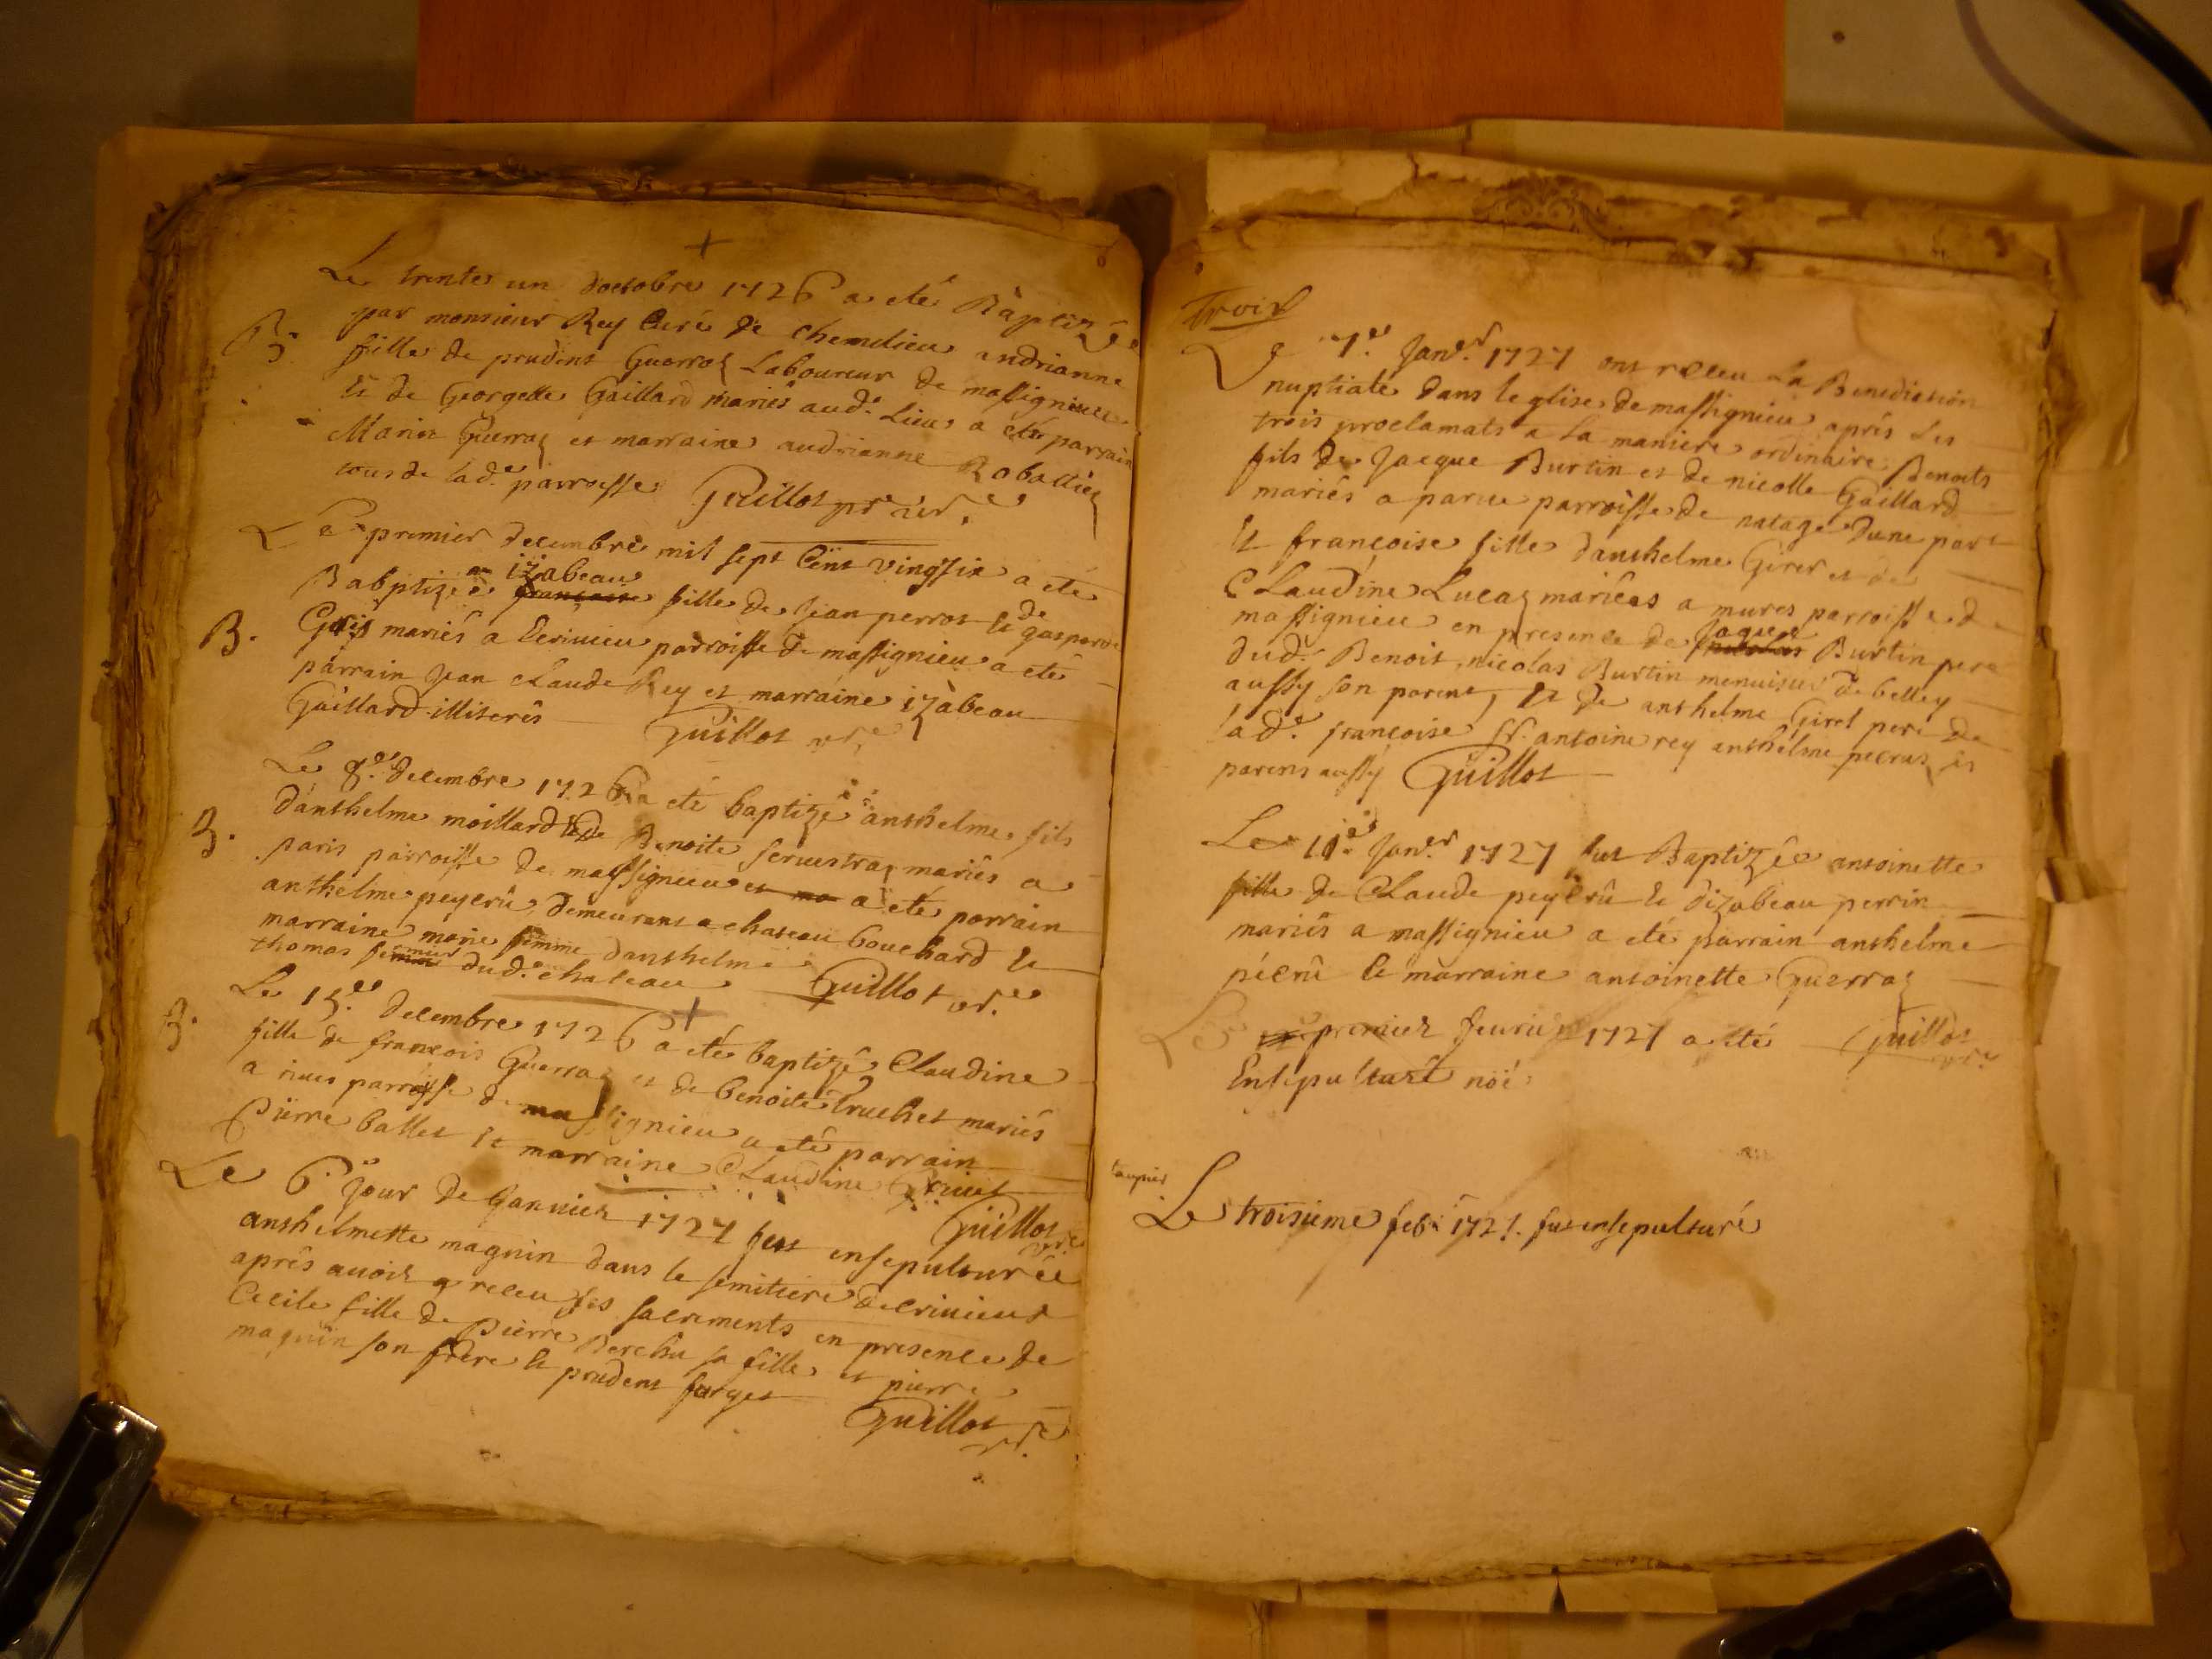 Le trente un doctobre 1726 a eté Baptizée
par monsieur Rey Curé de Chemilieu andrianne
B.
fille de prudent Guerraz Laboureur de massignieu
Et de Georgette Gaillard mariés aud. Lieu a eté parrain
Marin Guerraz et marraine audrianne
tous de lad.e parroisse Guillot
Le premier decembre mil sept Cent vingt six a eté
Babptizée izabeau fille de Jean perrot et de gasparde
B.
mariés a Crivieu parroisse de massignieu a eté
parrain Jean Claude Rey et marraine izabeau
Gaillard illiterés Guillot
Le 8.e decembre 1726 a eté baptizé anthelme fils
B.
danthelme moillard et de Benoite mariés a
paris parroisse de massignieu et a eté parrain
anthelme peycrû demeurant a chateau bouchard et
marraine marie femme danthelme
thomas dud. chateau Guillot
Le 15.e decembre 1726 a eté baptizé Claudine
B.
fille de francois Guerraz et de benoite truchet mariés
a parroisse de massignieu a eté parrain
Pierre ballet et marraine Claudine
Guillot
Le 6.e Jour de Janvier 1727 fut ensepulturée
anthelmette magnin dans le semitiere de crivieux
après avoir receu ses sacrements en presence de
Cecile fille de Pierre Berchu sa fille et pierre
magnin son frere et prudent forget
Guillot
Trois
Le 7.e Janv.r 1727 ont receu La Benediction
nuptiale dans leglise de massignieu aprés Les
trois proclamats a la maniere ordinaire Benoits
fils de Jacque Burtin et de nicolle Gaillard
mariés a parroisse de natage Dune part
Et françoise fille danthelme Girer et de
Claudine Lucaz mariées a mures parroisse de
massignieu en presence de Jaques Burtin pere
dud. Benoit, nicolas Burtin menuisier de belley
aussy son parent, Et de anthelme Giret pere de
lad.e françoise antoine rey anthelme
parens aussy Guillot
Le 11.e Janv.r 1727 fut Baptizée antoinette
fille de Claude peycrû et dizabeau perrin
mariés a massignieu a eté parrain anthelme
pécrû et marraine antoinette Guerraz
Guillot
Le premier fevrier 1727 a eté
Ensepulturé noé
Le troisieme feb. 1727. fut ensepulturé